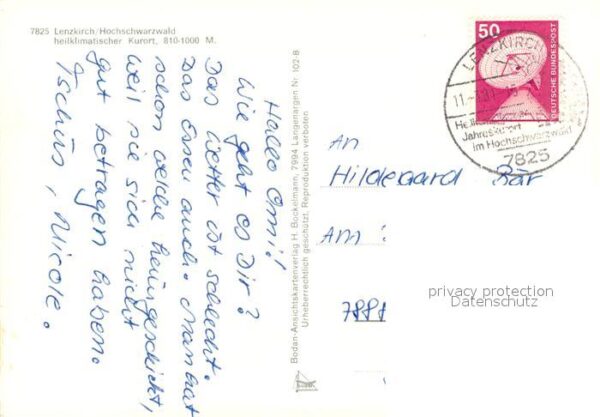 7825 Lenzkirch/Hochschwarzwald
heilklimatischer Kurort, 810-1000 M.
Hallo Omi!!
Wie geht es Dir?
Das Wetter ist schlecht.
Das Essen auch. Man hat
schon welche heimgeschickt,
weil sie sich nicht
gut betragen haben.
Tschüs, Nicole.
Bodan-Ansichtskartenverlag H. Bockelmann, 7994 Langenargen Nr. 102-B
Urheberrechtlich geschützt. Reproduktion verboten
50
DEUTSCHE BUNDESPOST
LENZKIRCH
11.
Jahreskurort
im Hochschwarzwald
7825
An
Hildegard Bär
Am
privacy protection
Datenschutz